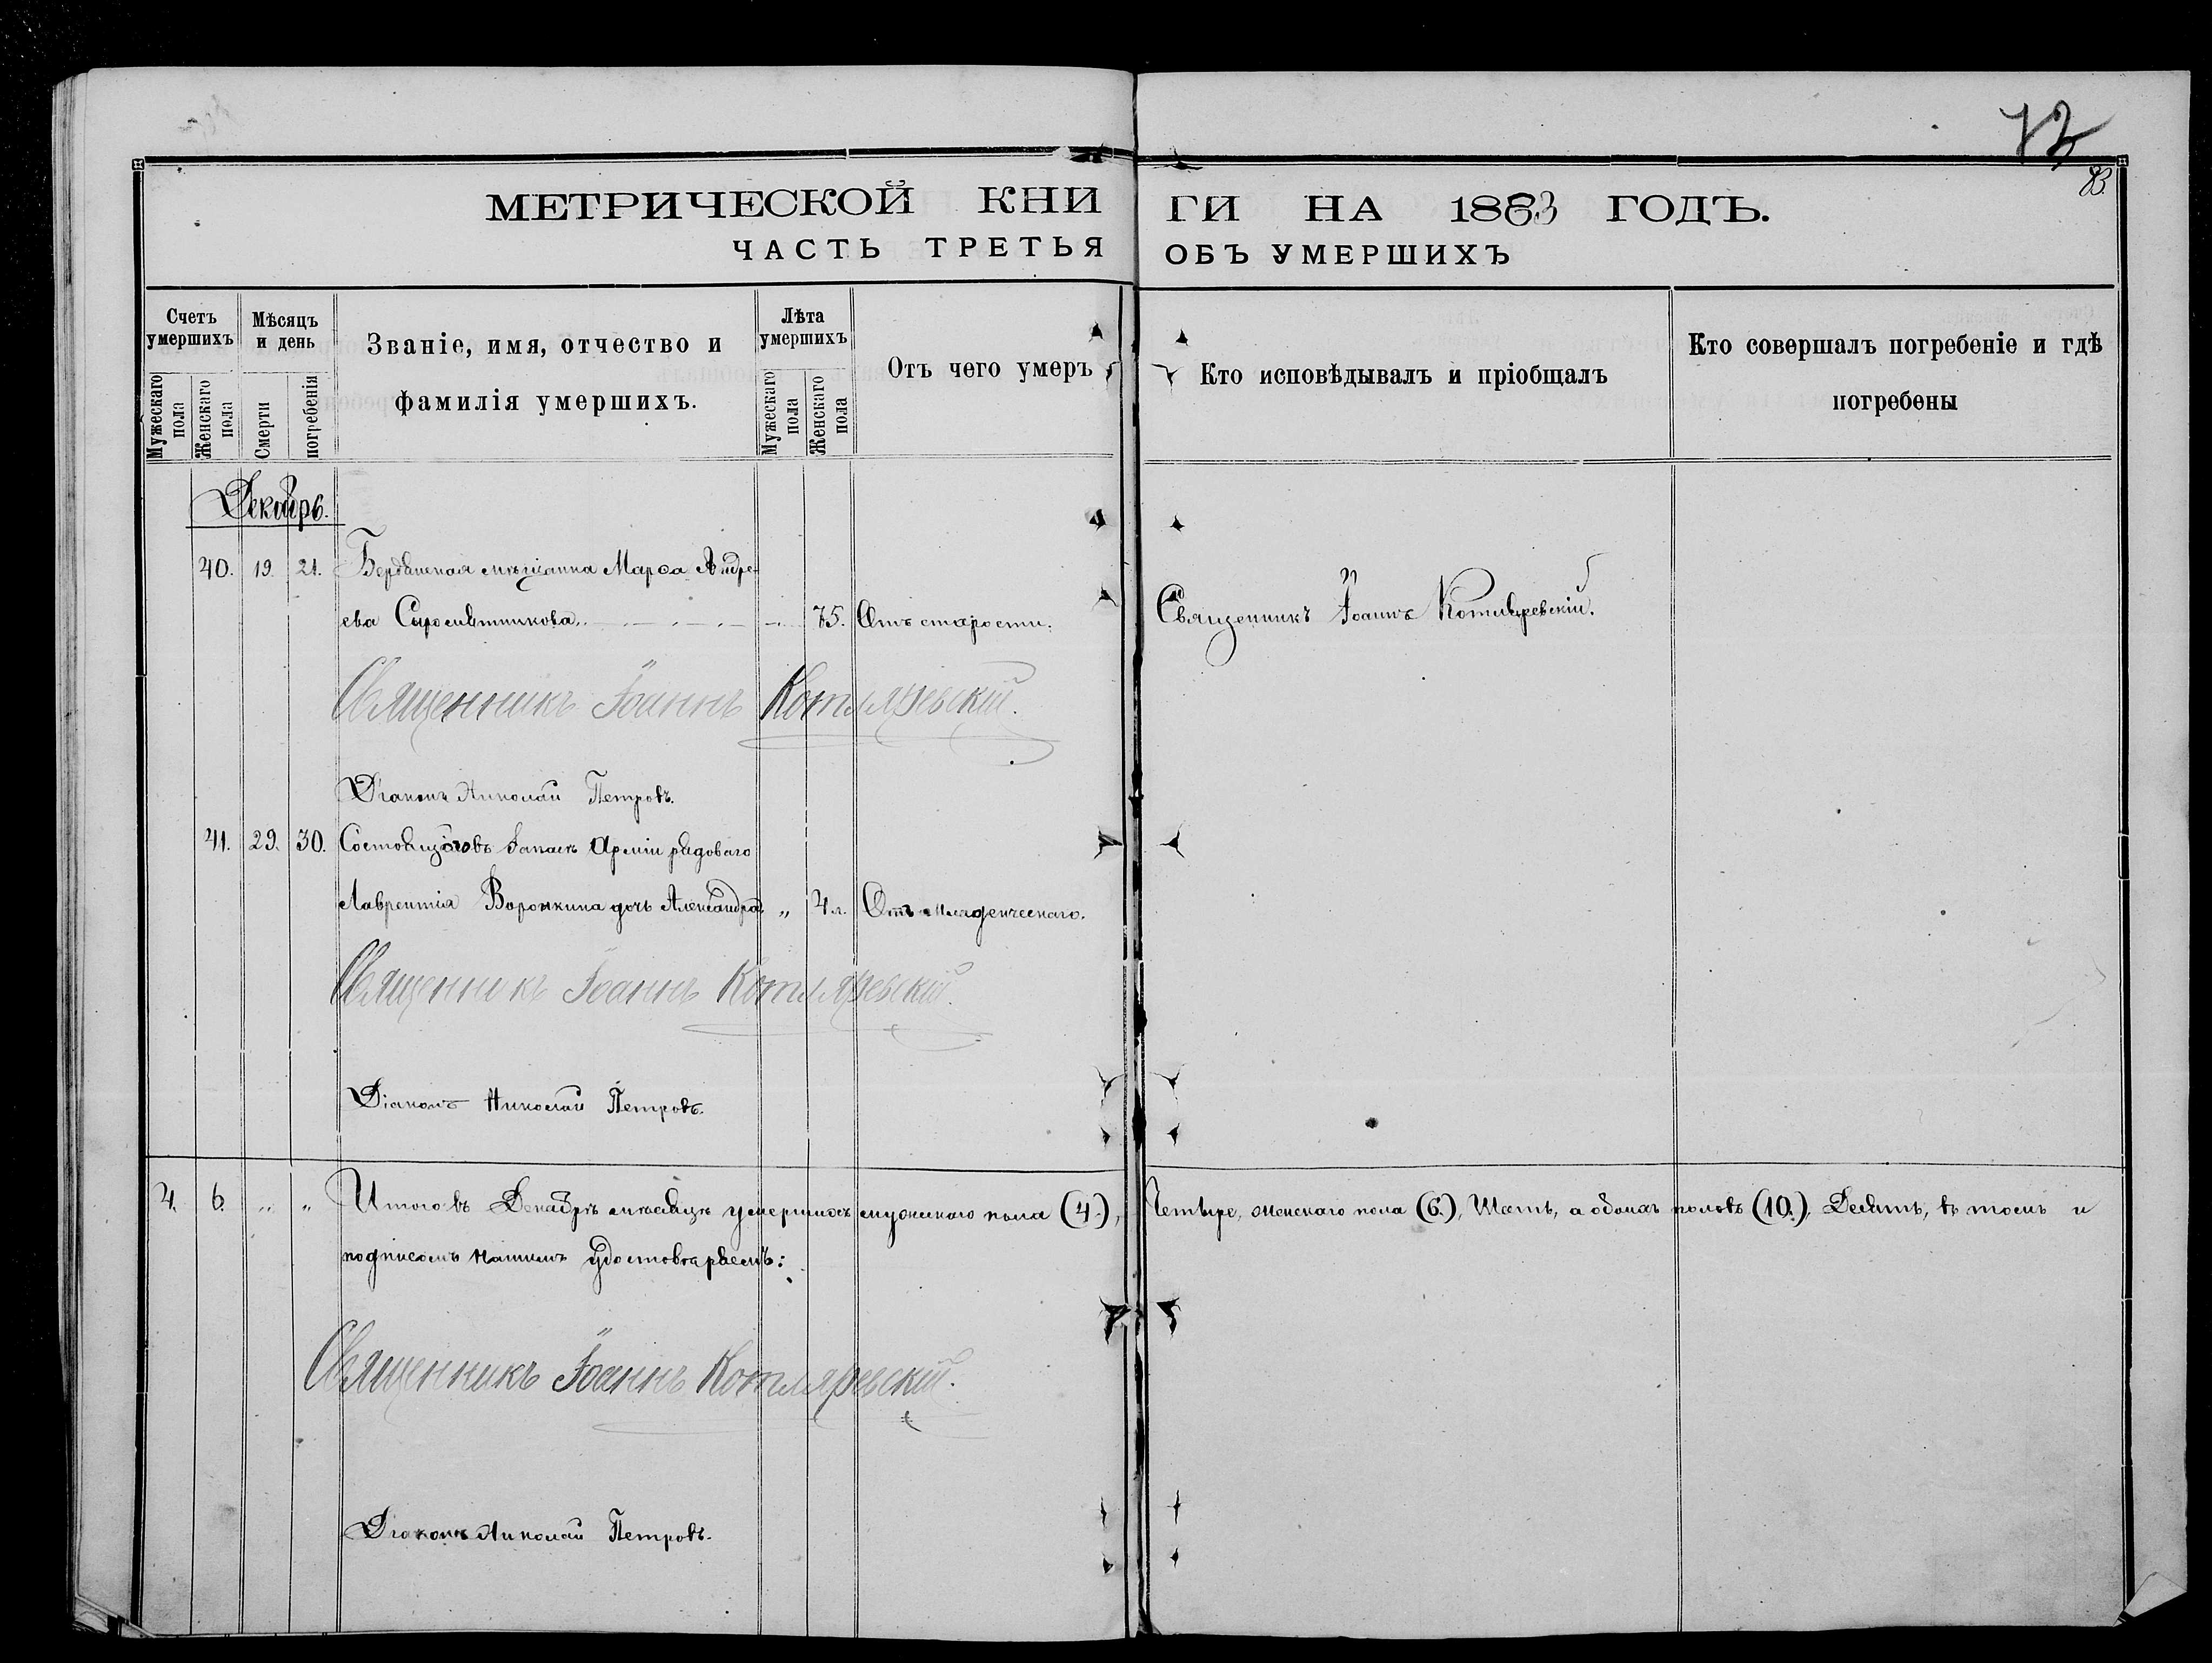 73
83.
МЕТРИЧЕСКОЙ КНИГИ НА 1883 ГОДЪ.
ЧАСТЬ ТРЕТЬЯ ОБЪ УМЕРШИХЪ
Счетъ умершихъ
Мужескаго пола
Женскаго пола
Мѣсяцъ и день
Смерти
погребенія
Званіе, имя, отчество и
фамилія умершихъ.
Лѣта умершихъ
Мужескаго пола
Женскаго пола
Отъ чего умеръ
Кто исповѣдывалъ и пріобщалъ
Кто совершалъ погребеніе и гдѣ
погребены
Декабрь.
40. 19. 21. Бердянская мѣщанка Марѳа Андре-
ева Сыромятникова. 75. Отъ старости. Священникъ Іоаннъ Котляревскій.
Священникъ Іоаннъ Котляревскій.
Діаконъ Николай Петровъ.
41. 29. 30. Состоящаго въ запасѣ Арміи рядоваго
Лаврентія Воронкина дочь Александра „ 4 л. Отъ младенческаго.
Священникъ Іоаннъ Котляревскій.
Діаконъ Николай Петровъ.
4. 6. „ „ Итого въ Декабрѣ мѣсяцѣ умершихъ мужескаго пола (4.), Четыре, женскаго пола (6.), Шесть, а обоихъ половъ (10.), Десять, въ томъ и
подписомъ нашимъ удостовѣряемъ:
Священникъ Іоаннъ Котляревскій.
Діаконъ Николай Петровъ.